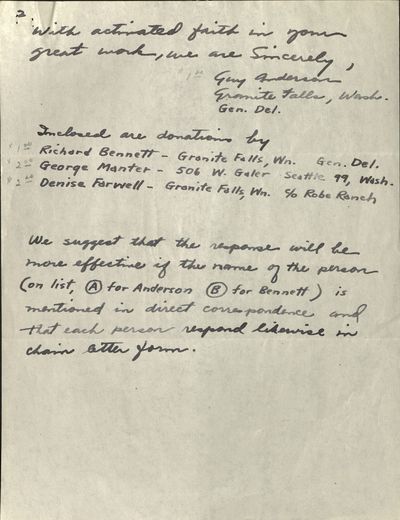 2
With activated faith in your
great work, we are Sincerely,
Guy Anderson
Granite Falls, Wash.
Gen. Del.
Inclosed are donations by
Richard Bennett – Granite Falls, Wn. Gen. Del.
George Manter – 506 W. Galer Seattle 99, Wash.
Denise Farwell – Granite Falls, Wn. c/o Robe Ranch
We suggest that the response will be
more effective if the name of the person
(on list, A for Anderson B for Bennett) is
mentioned in direct correspondence and
that each person respond likewise in
chain letter form.